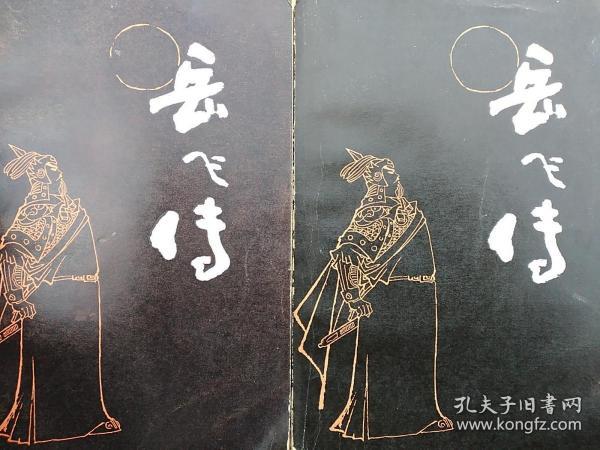 岳飞传
岳飞传
孔夫子旧書网
www.kongfz.com